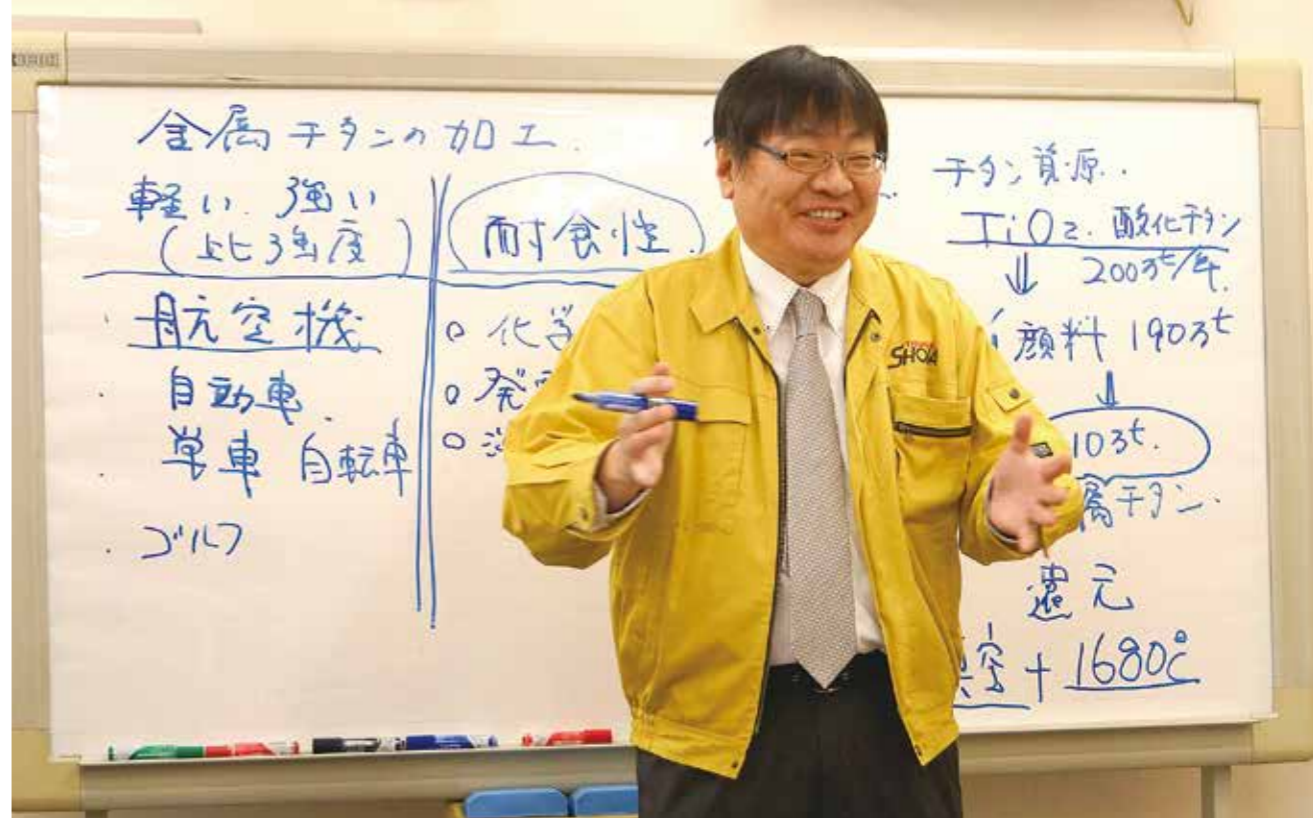 金属チタンの加工.
軽い 強い
(比強度)
航空機
自動車.
単車 自転車
ゴルフ
耐食性
化学
発電
チタン資源.
TiO2. 酸化チタン
200万t/年.
顔料 190万t
10万t.
属チタン.
還元
真空+1680℃
SHOWA